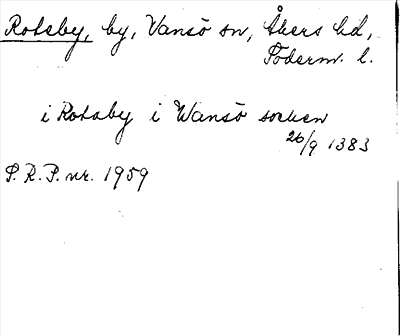 Rotsby, by, Vansö sn, Åkers hd,
Söderm. l.
i Rotsby i Wansö socken
26/9 1383
S. R. P. nr. 1959